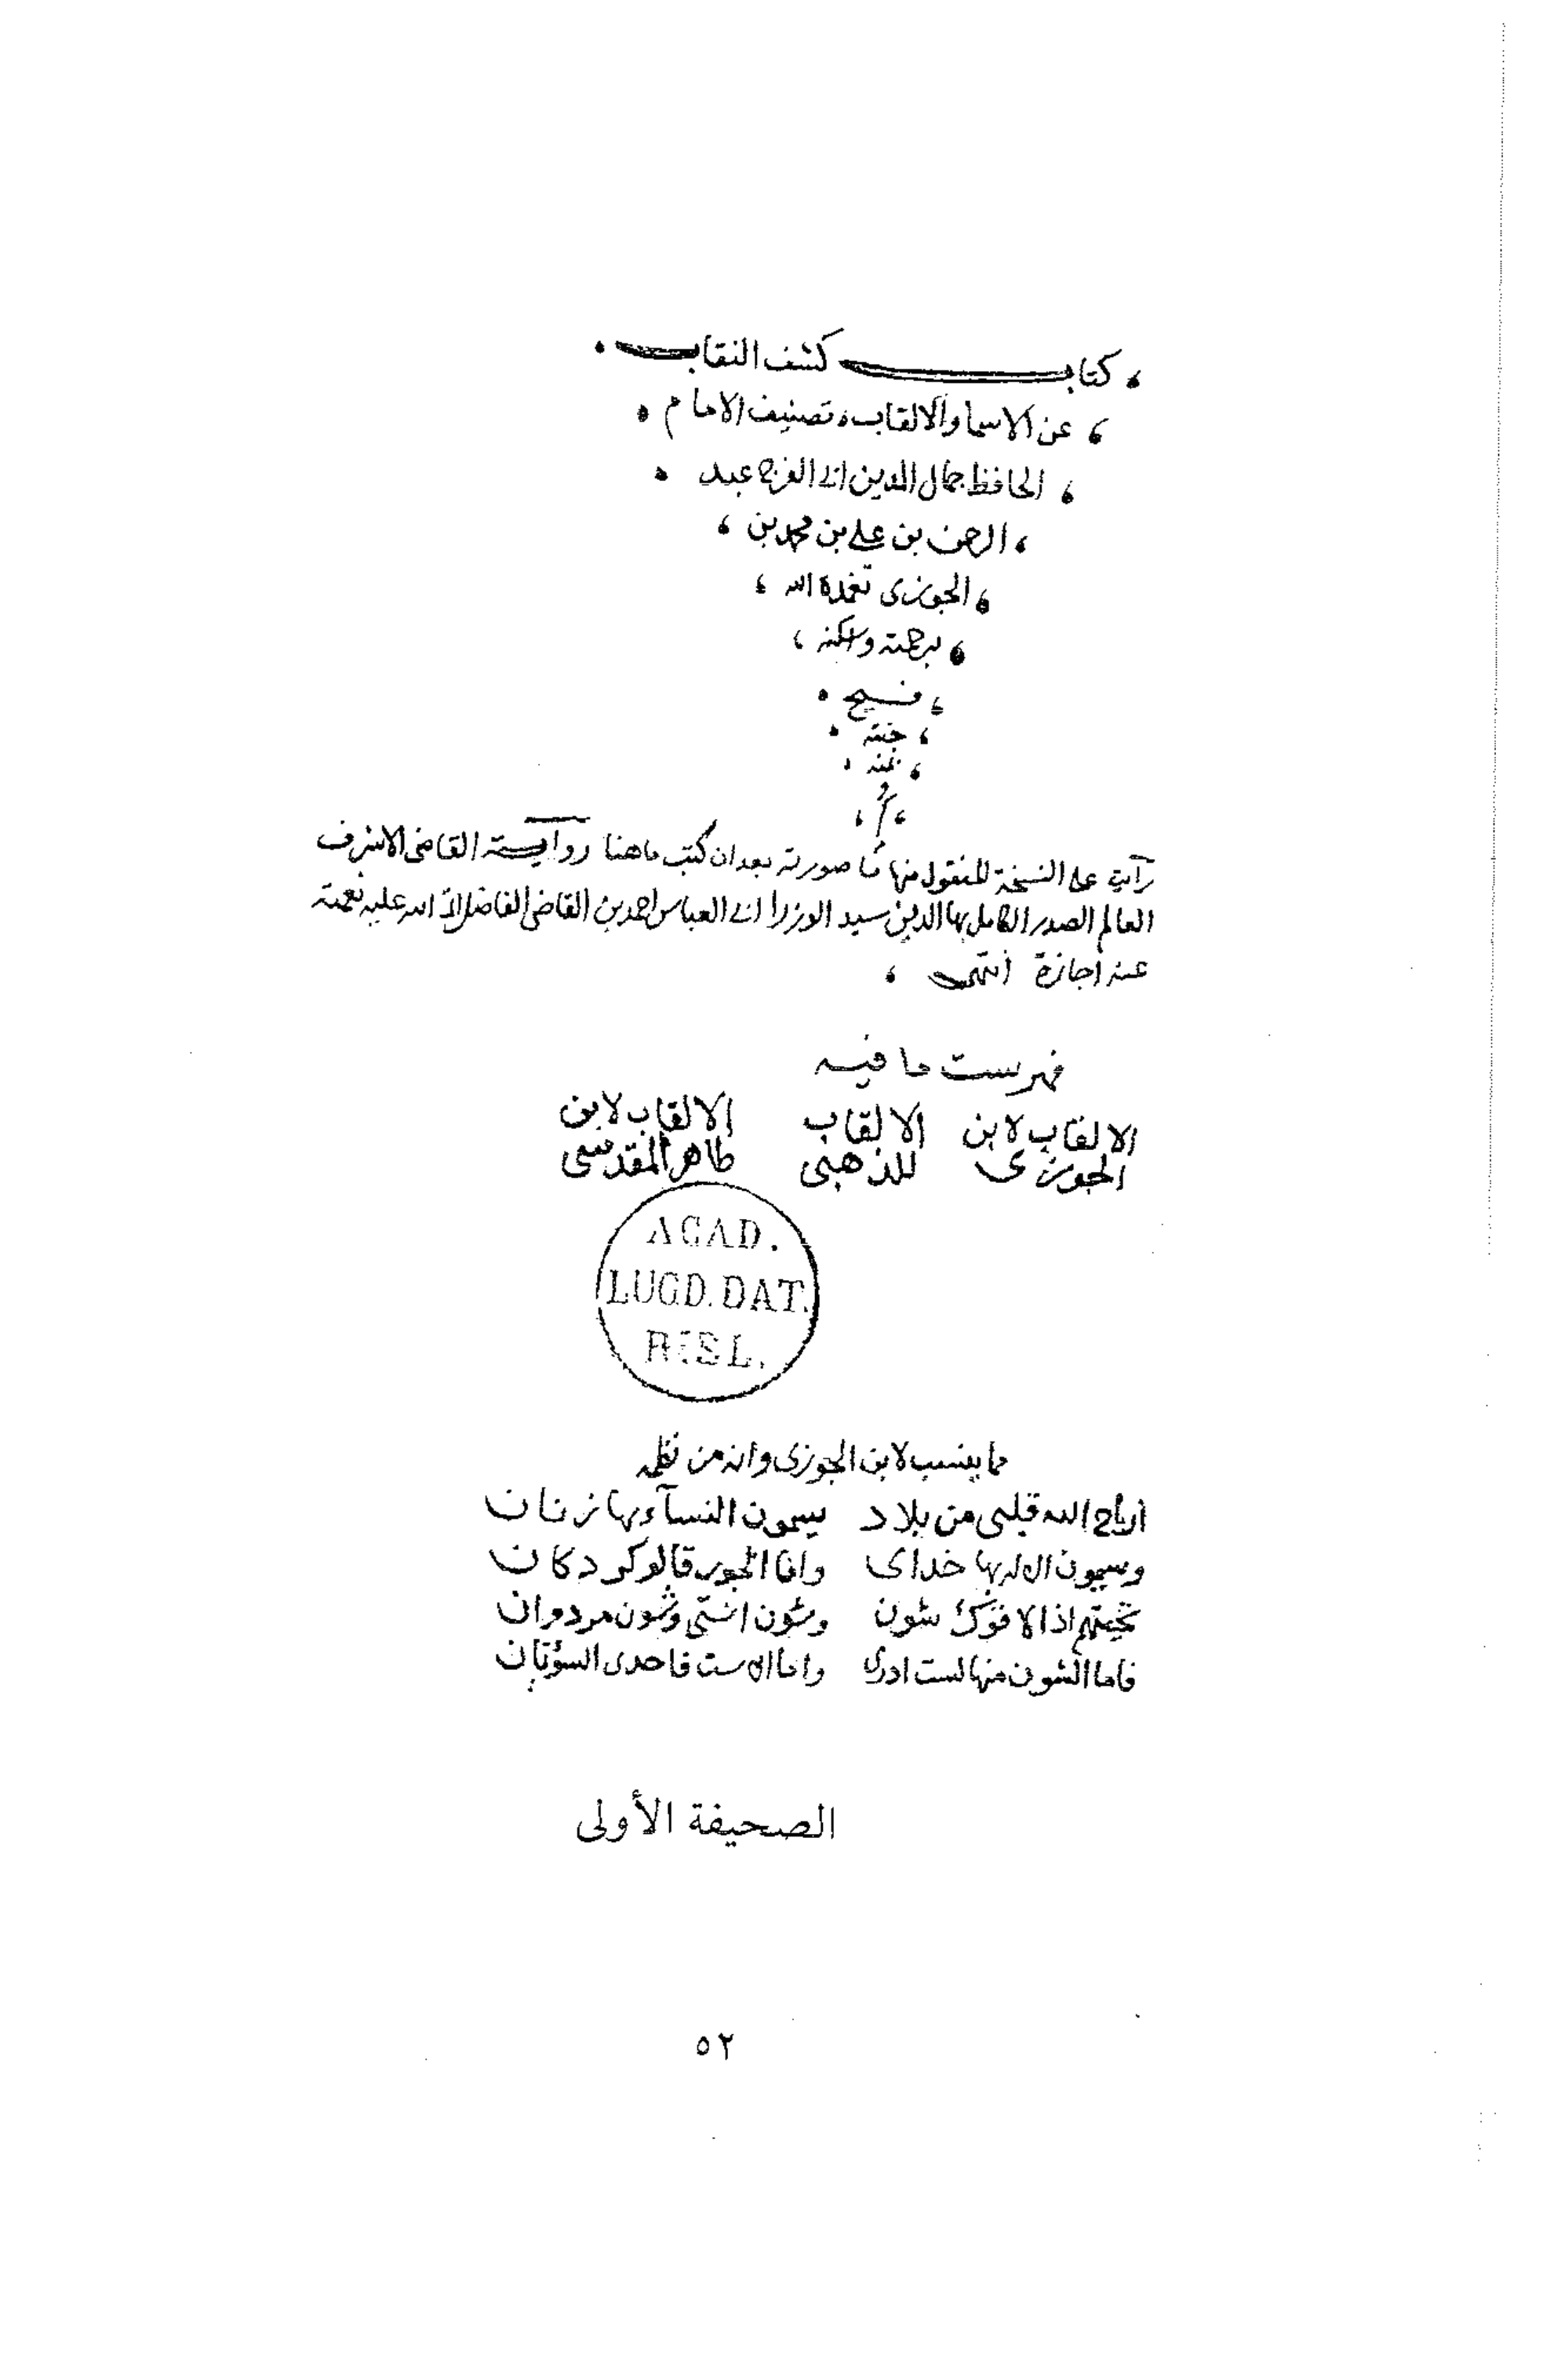 كتاب كشف النقاب
عن الاسما والالقاب تصنيف الامام
الحافظ جمال الدين ابى الفرج عبد
الرحمن بن على بن محمد بن
الجوزى تغمده الله
برحمته واسكنه
فسيح
جنته
بمنه
و
رأيت على النسخة المنقول منها ما صورته بعد ان كتب ما هنا رواية القاضى الاشرف
العالم الصدر الكامل بها الدين سيد الوزرا ابى العباس احمد بن القاضى الفاضل الله عليه نعمته
عنه اجازة انتهى
فهرست ما فيه
الالقاب لابن الجوزى
الالقاب للذهبى
الالقاب لابن طاهر المقدسى
ACAD.
LUGD. BAT.
BIBL.
مما ينسب لابن الجوزى وانه من نظمه
اراح الله قلبى من بلاد يسمون النسآء بها زنان
وسيمون الاله بها خداى واما الجور قالو كردكان
تحيتهم اذا لاقوك شون وشون اشتى وشون مردمران
فاما الشون منها لست ادرى واما الاست فاحدى السؤتان
الصحيفة الأولى
٥٢